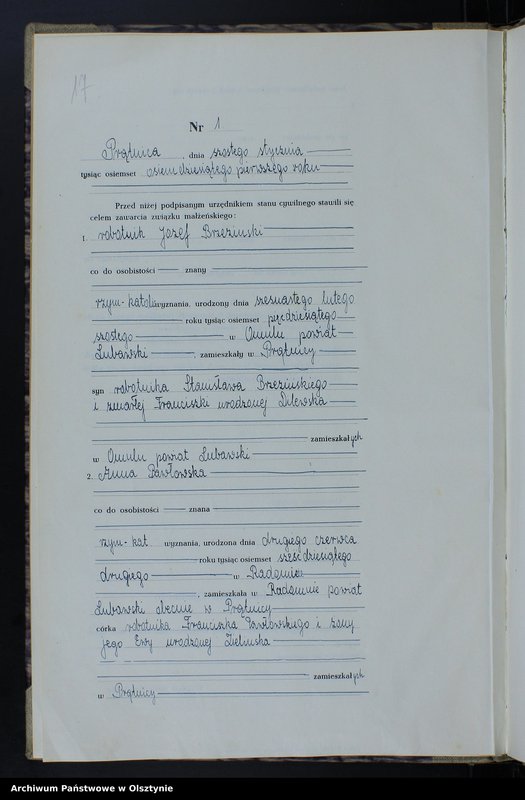 17
Nr 1
Prątnica, dnia szóstego stycznia
tysiąc osiemset osiemdziesiątego pierwszego roku
Przed niżej podpisanym urzędnikiem stanu cywilnego stawili się
celem zawarcia związku małżeńskiego:
1. robotnik Józef Brzeziński
co do osobistości znany
rzym-katol wyznania, urodzony dnia szesnastego lutego
roku tysiąc osiemset pięćdziesiątego
szóstego w Omulu powiat
Lubawski, zamieszkały w Prątnicy
syn robotnika Stanisława Brzezińskiego
i zmarłej Franciszki urodzonej
zamieszkałych
w Omulu powiat Lubawski
2. Anna Pawłowska
co do osobistości znana
rzym-kat wyznania, urodzona dnia drugiego czerwca
roku tysiąc osiemset sześćdziesiątego
drugiego w Radominie
, zamieszkała w Radominie powiat
Lubawski obecnie w Prątnicy
córka robotnika Franciszka Pawłowskiego i żony
jego Ewy urodzonej Zielińska
zamieszkałych
w Prątnicy
Archiwum Państwowe w Olsztynie